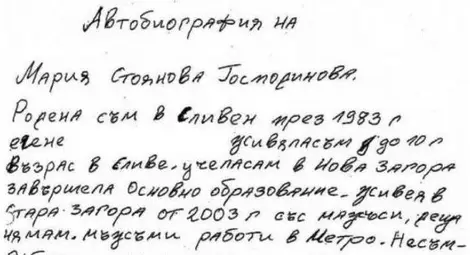 Автобиография на
Мария Стоянова Господинова.
Родена съм в Сливен през 1983 г
живяласъм до 10 г
възрас в Сливе. учеласам в Нова Загора
завършела основно образование. живея в
Стара Загора от 2003 г със мазъси, деца
нямам. мъжсъми работи в Метро. Несъм-